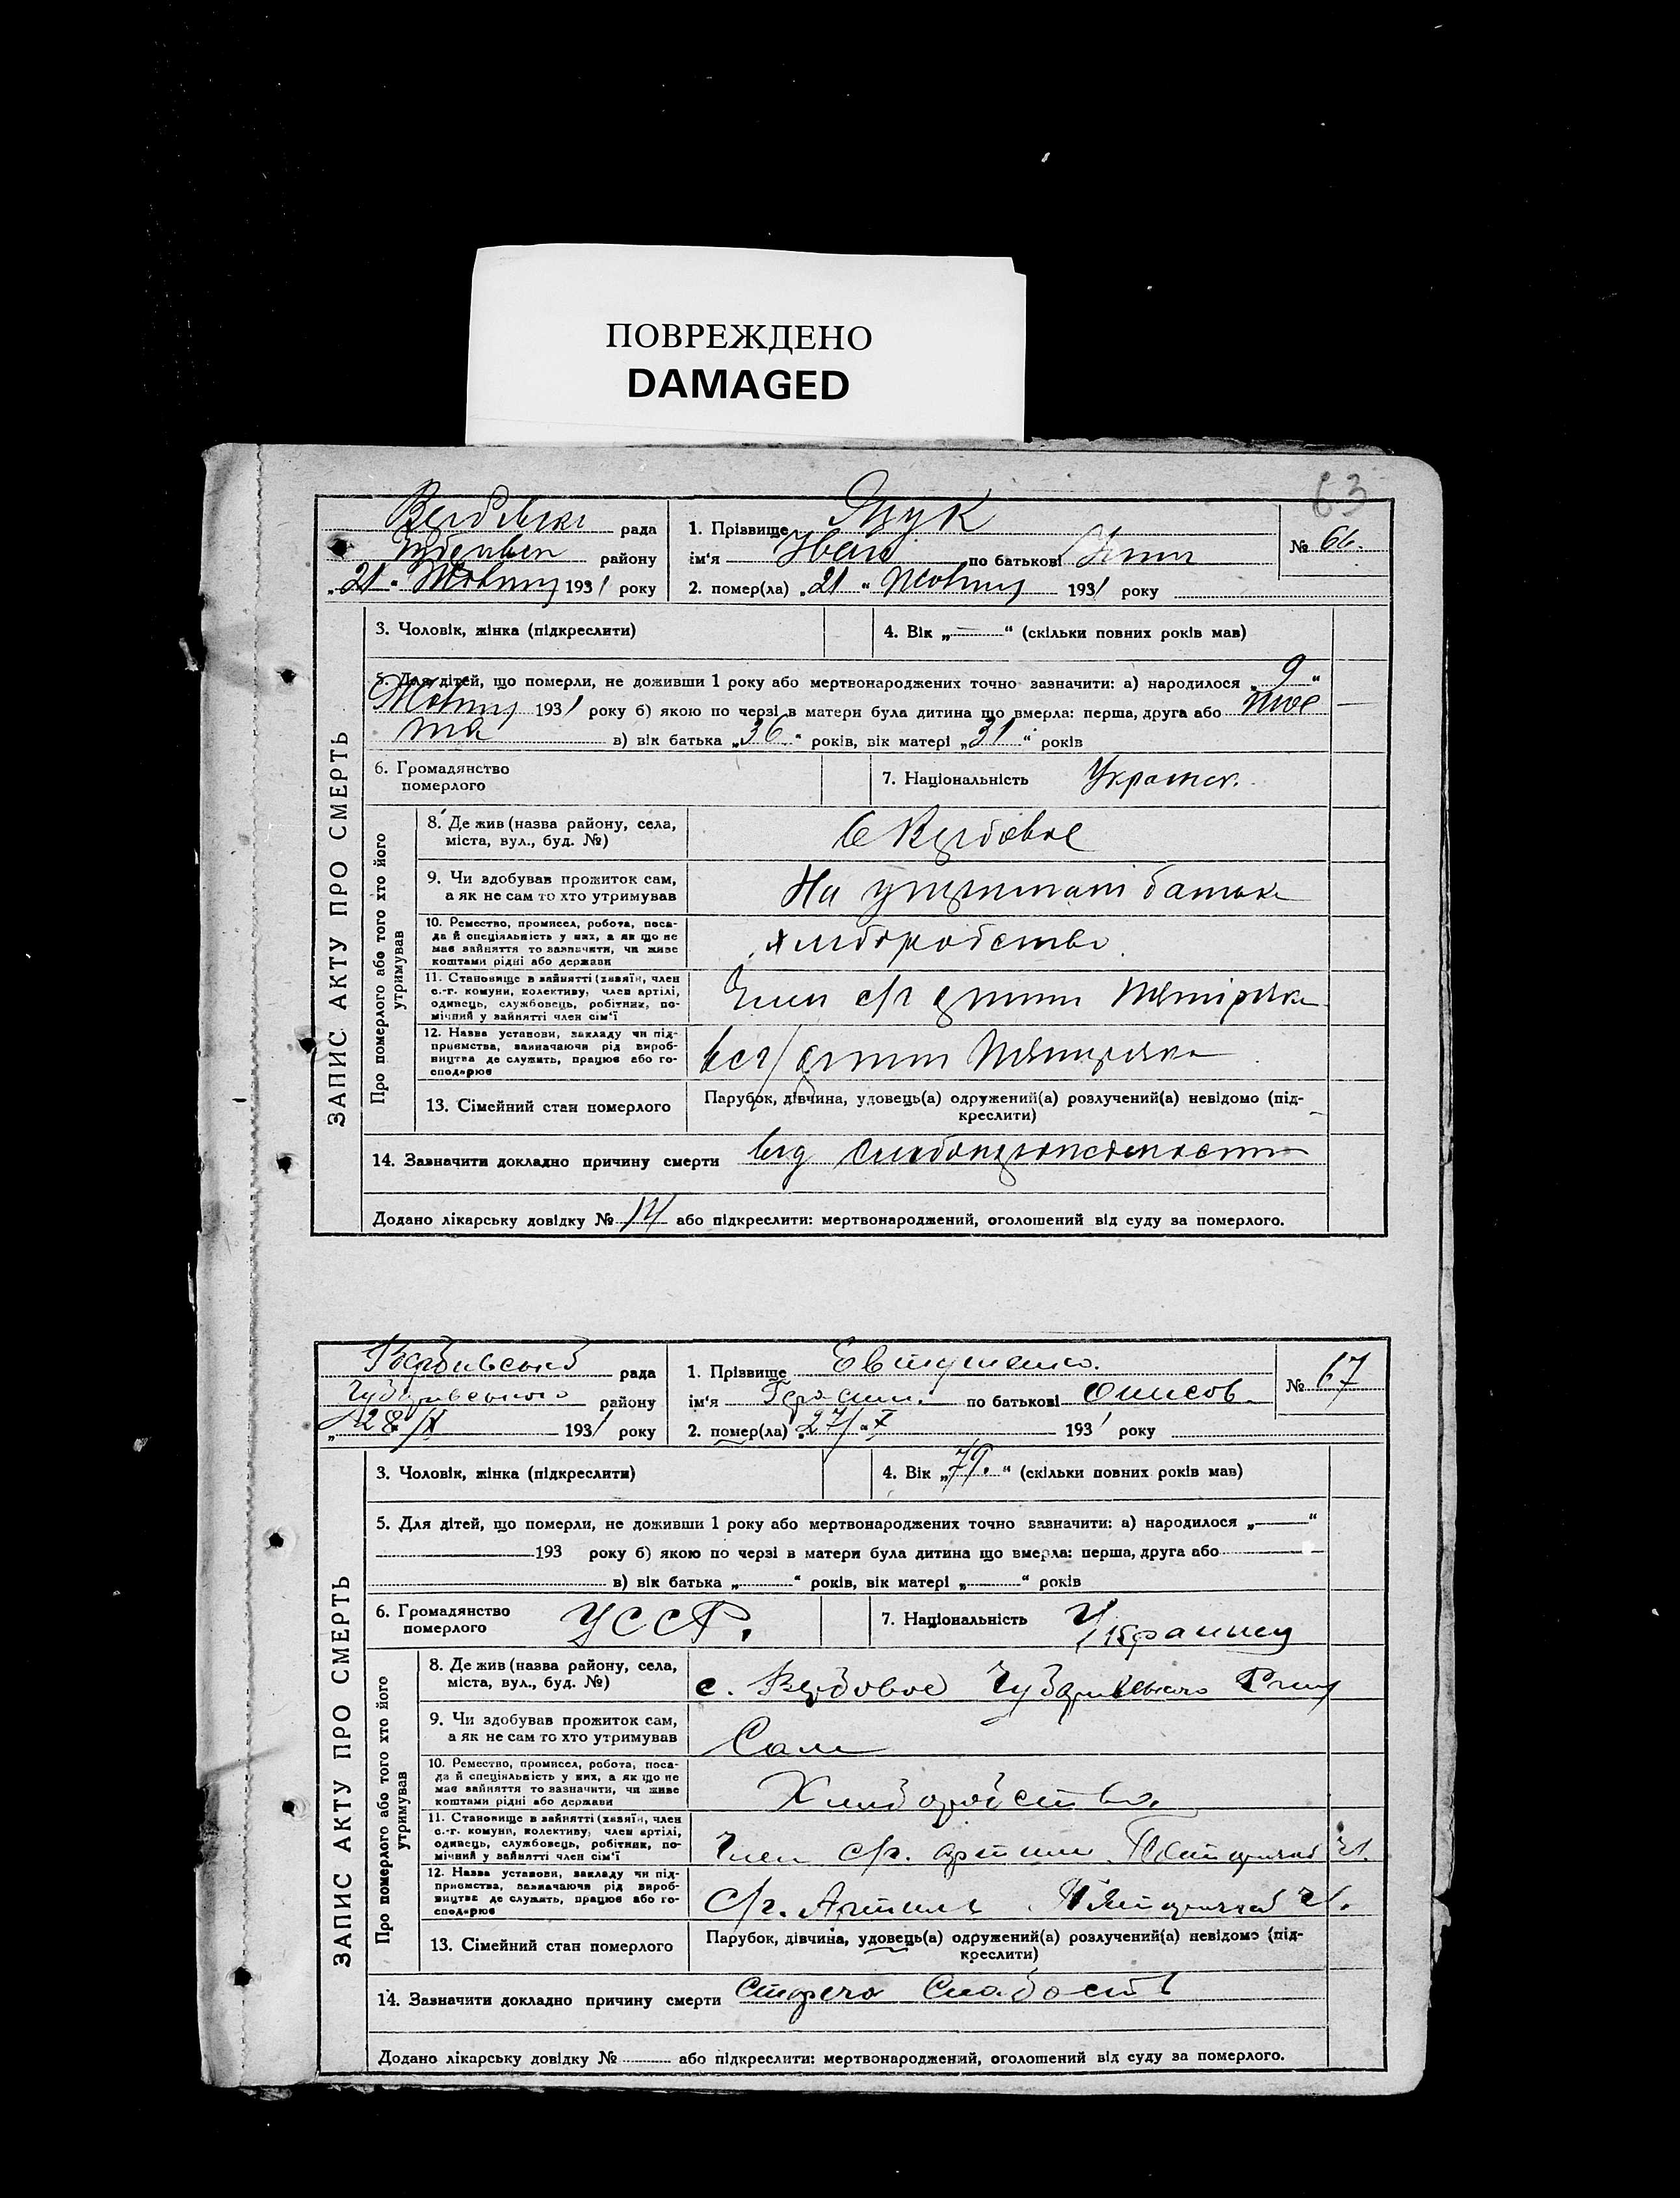 ПОВРЕЖДЕНО
DAMAGED
63
рада
району
„21“ 1931 року
1. Прізвище
ім'я Іван по батькові
2. помер(ла) „21“ 1931 року
№ 66.
ЗАПИС АКТУ ПРО СМЕРТЬ
3. Чоловік, жінка (підкреслити)
4. Вік „—“ (скільки повних років мав)
5. Для дітей, що померли, не доживши 1 року або мертвонароджених точно зазначити: а) народилося „9“
1931 року б) якою по черзі в матери була дитина що вмерла: перша, друга або шос
та в) вік батька „36“ років, вік матері „31“ років
6. Громадянство
померлого
7. Національність Украинск.
Про померлого або того хто його
утримував
8. Де жив (назва району, села,
міста, вул., буд. №)
с Вербовое
9. Чи здобував прожиток сам,
а як не сам то хто утримував
На утриманi батька
10. Ремество, промисел, робота, поса-
да й спеціяльність у них, а як що не
має зайняття то зазначити, чи живе
коштами рідні або держави
хлиборобство
11. Становище в зайнятті (хазяїн, член
с.-г. комуни, колективу, член артілі,
одинець, службовець, робітник, по-
мічний у зайнятті член сім'ї
Член с/г артили
12. Назва установи, закладу чи під-
приємства, зазначаючи рід вироб-
ництва де служить, працює або го-
сподарює
13. Сімейний стан померлого
Парубок, дівчина, удовець(а) одружений(а) розлучений(а) невідомо (під-
креслити)
14. Зазначити докладно причину смерти від
Додано лікарську довідку № 14 або підкреслити: мертвонароджений, оголошений від суду за померлого.
Вербивської рада
Чубаривського району
„28/X 1931 року
1. Прізвище Евтушенко.
ім'я Герасим. по батькові Онисов.
2. помер(ла) „27/“X 1931 року
№ 67
ЗАПИС АКТУ ПРО СМЕРТЬ
3. Чоловік, жінка (підкреслити)
4. Вік „79.“ (скільки повних років мав)
5. Для дітей, що померли, не доживши 1 року або мертвонароджених точно зазначити: а) народилося „—“
193 року б) якою по черзі в матери була дитина що вмерла: перша, друга або
в) вік батька „—“ років, вік матері „—“ років
6. Громадянство
померлого
УССР.
7. Національність Украинец
Про померлого або того хто його
утримував
8. Де жив (назва району, села,
міста, вул., буд. №)
с. Вербовое Чубаривського
9. Чи здобував прожиток сам,
а як не сам то хто утримував
Сам
10. Ремество, промисел, робота, поса-
да й спеціяльність у них, а як що не
має зайняття то зазначити, чи живе
коштами рідні або держави
Хлиборобство.
11. Становище в зайнятті (хазяїн, член
с.-г. комуни, колективу, член артілі,
одинець, службовець, робітник, по-
мічний у зайнятті член сім'ї
Член с/г. артили
12. Назва установи, закладу чи під-
приємства, зазначаючи рід вироб-
ництва де служить, працює або го-
сподарює
С/г. Артиль
13. Сімейний стан померлого
Парубок, дівчина, удовець(а) одружений(а) розлучений(а) невідомо (під-
креслити)
14. Зазначити докладно причину смерти Стареча Слабость
Додано лікарську довідку № або підкреслити: мертвонароджений, оголошений від суду за померлого.